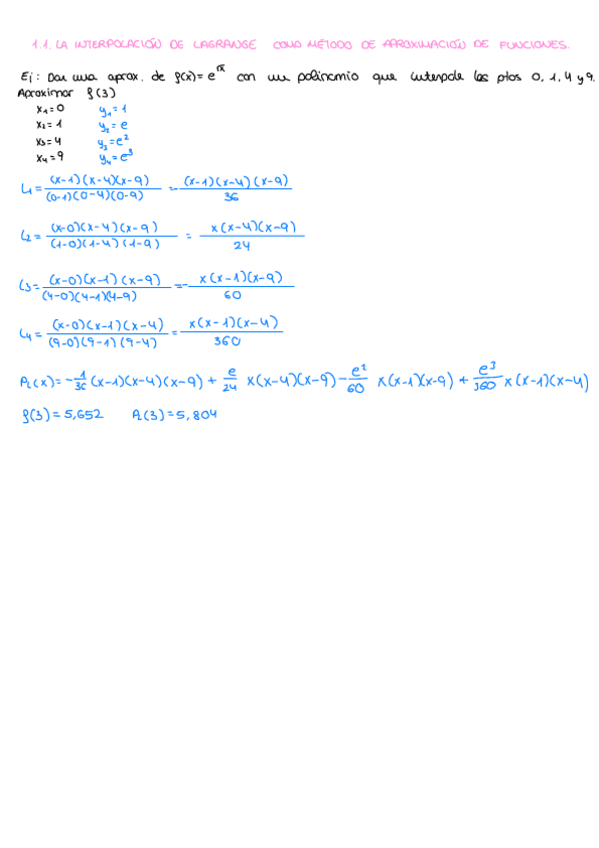 1.1. LA INTERPOLACIÓN DE LAGRANGE COMO MÉTODO DE APROXIMACIÓN DE FUNCIONES.
Ej: Dar una aprox. de f(x) = e^√x con un polinomio que interpole los ptos 0, 1, 4 y 9.
Aproximar f(3)
x₁ = 0 y₁ = 1
x₂ = 1 y₂ = e
x₃ = 4 y₃ = e²
x₄ = 9 y₄ = e³
L₁ = (x-1)(x-4)(x-9) / (0-1)(0-4)(0-9) = -(x-1)(x-4)(x-9) / 36
L₂ = (x-0)(x-4)(x-9) / (1-0)(1-4)(1-9) = x(x-4)(x-9) / 24
L₃ = (x-0)(x-1)(x-9) / (4-0)(4-1)(4-9) = - x(x-1)(x-9) / 60
L₄ = (x-0)(x-1)(x-4) / (9-0)(9-1)(9-4) = x(x-1)(x-4) / 360
P_L(x) = -1/36 (x-1)(x-4)(x-9) + e/24 x(x-4)(x-9) - e²/60 x(x-1)(x-9) + e³/360 x(x-1)(x-4)
f(3) = 5,652 P_L(3) = 5,804